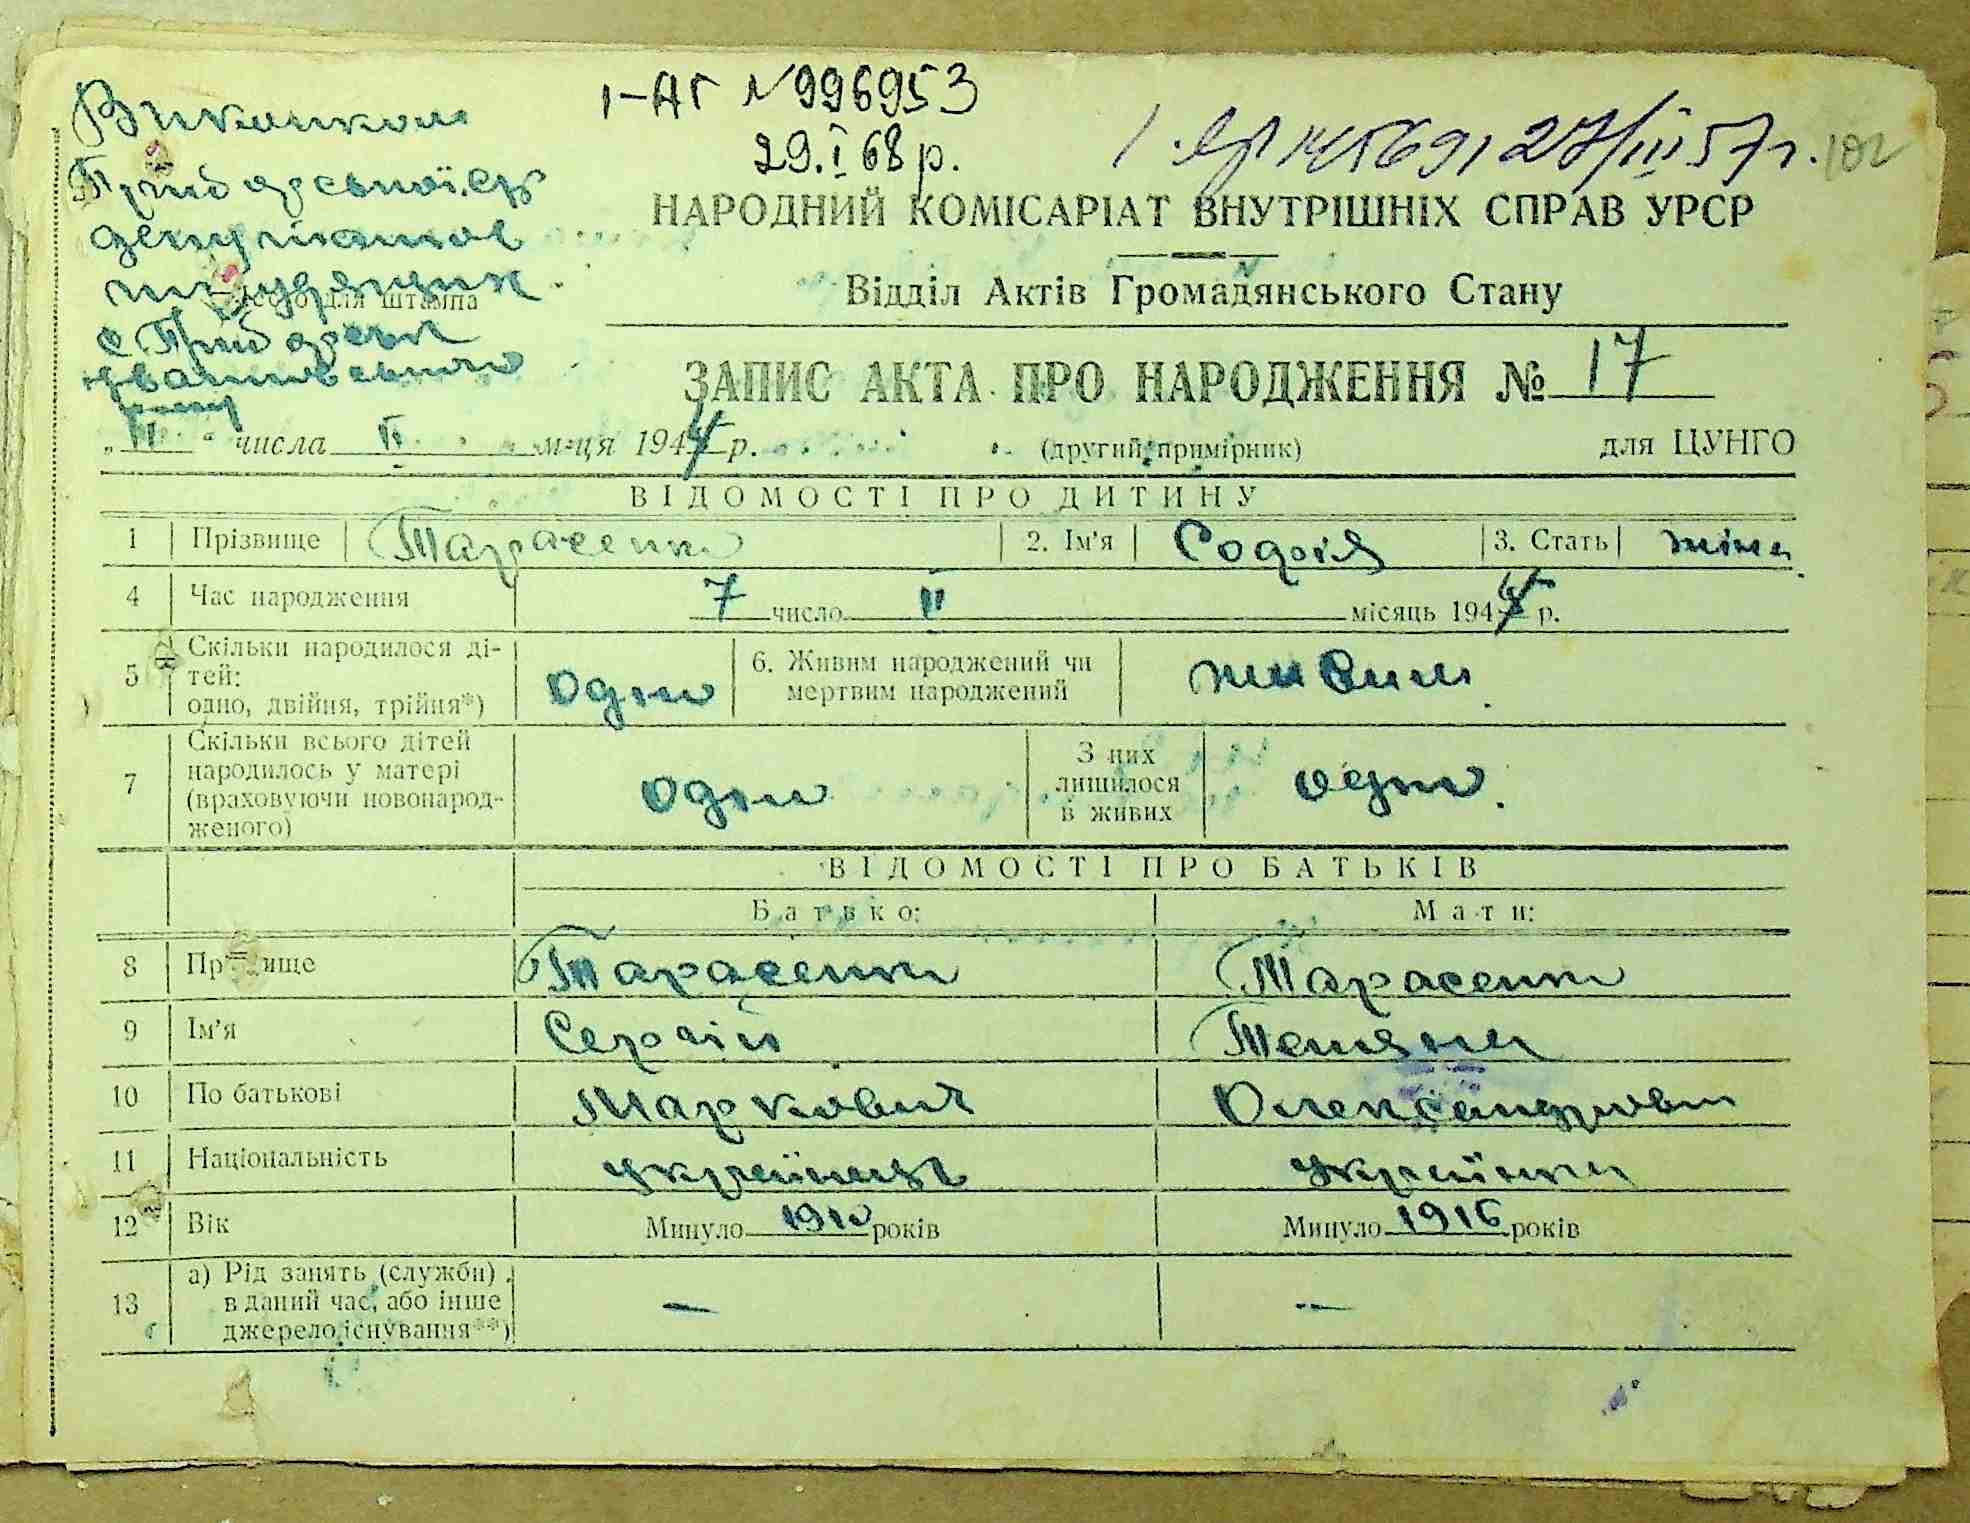 Виконком
1-АГ №996953
29.І 68 р.
27/III 57 г.
102
депутатів
трудящих
Місце для штампа
НАРОДНИЙ КОМІСАРІАТ ВНУТРІШНІХ СПРАВ УРСР
Відділ Актів Громадянського Стану
ЗАПИС АКТА ПРО НАРОДЖЕННЯ № 17
„11“ числа II м-ця 1944 р. (другий примірник) для ЦУНГО
ВІДОМОСТІ ПРО ДИТИНУ
1 Прізвище Тарасенко 2. Ім'я Софія 3. Стать жіна
4 Час народження 7 число II місяць 1944 р.
5 Скільки народилося ді-
тей:
одно, двійня, трійня*)
одно
6. Живим народжений чи
мертвим народжений
живим
7 Скільки всього дітей
народилось у матері
(враховуючи новонарод-
женого)
одно
З них
лишилося
в живих
одно.
ВІДОМОСТІ ПРО БАТЬКІВ
Батько: Мати:
8 Прізвище Тарасенко Тарасенко
9 Ім'я Сергій Тетяна
10 По батькові Маркович Олександровна
11 Національність українець українка
12 Вік Минуло 1910 років Минуло 1916 років
13 а) Рід занять (служби)
в даний час, або інше
джерело існування**)
— —